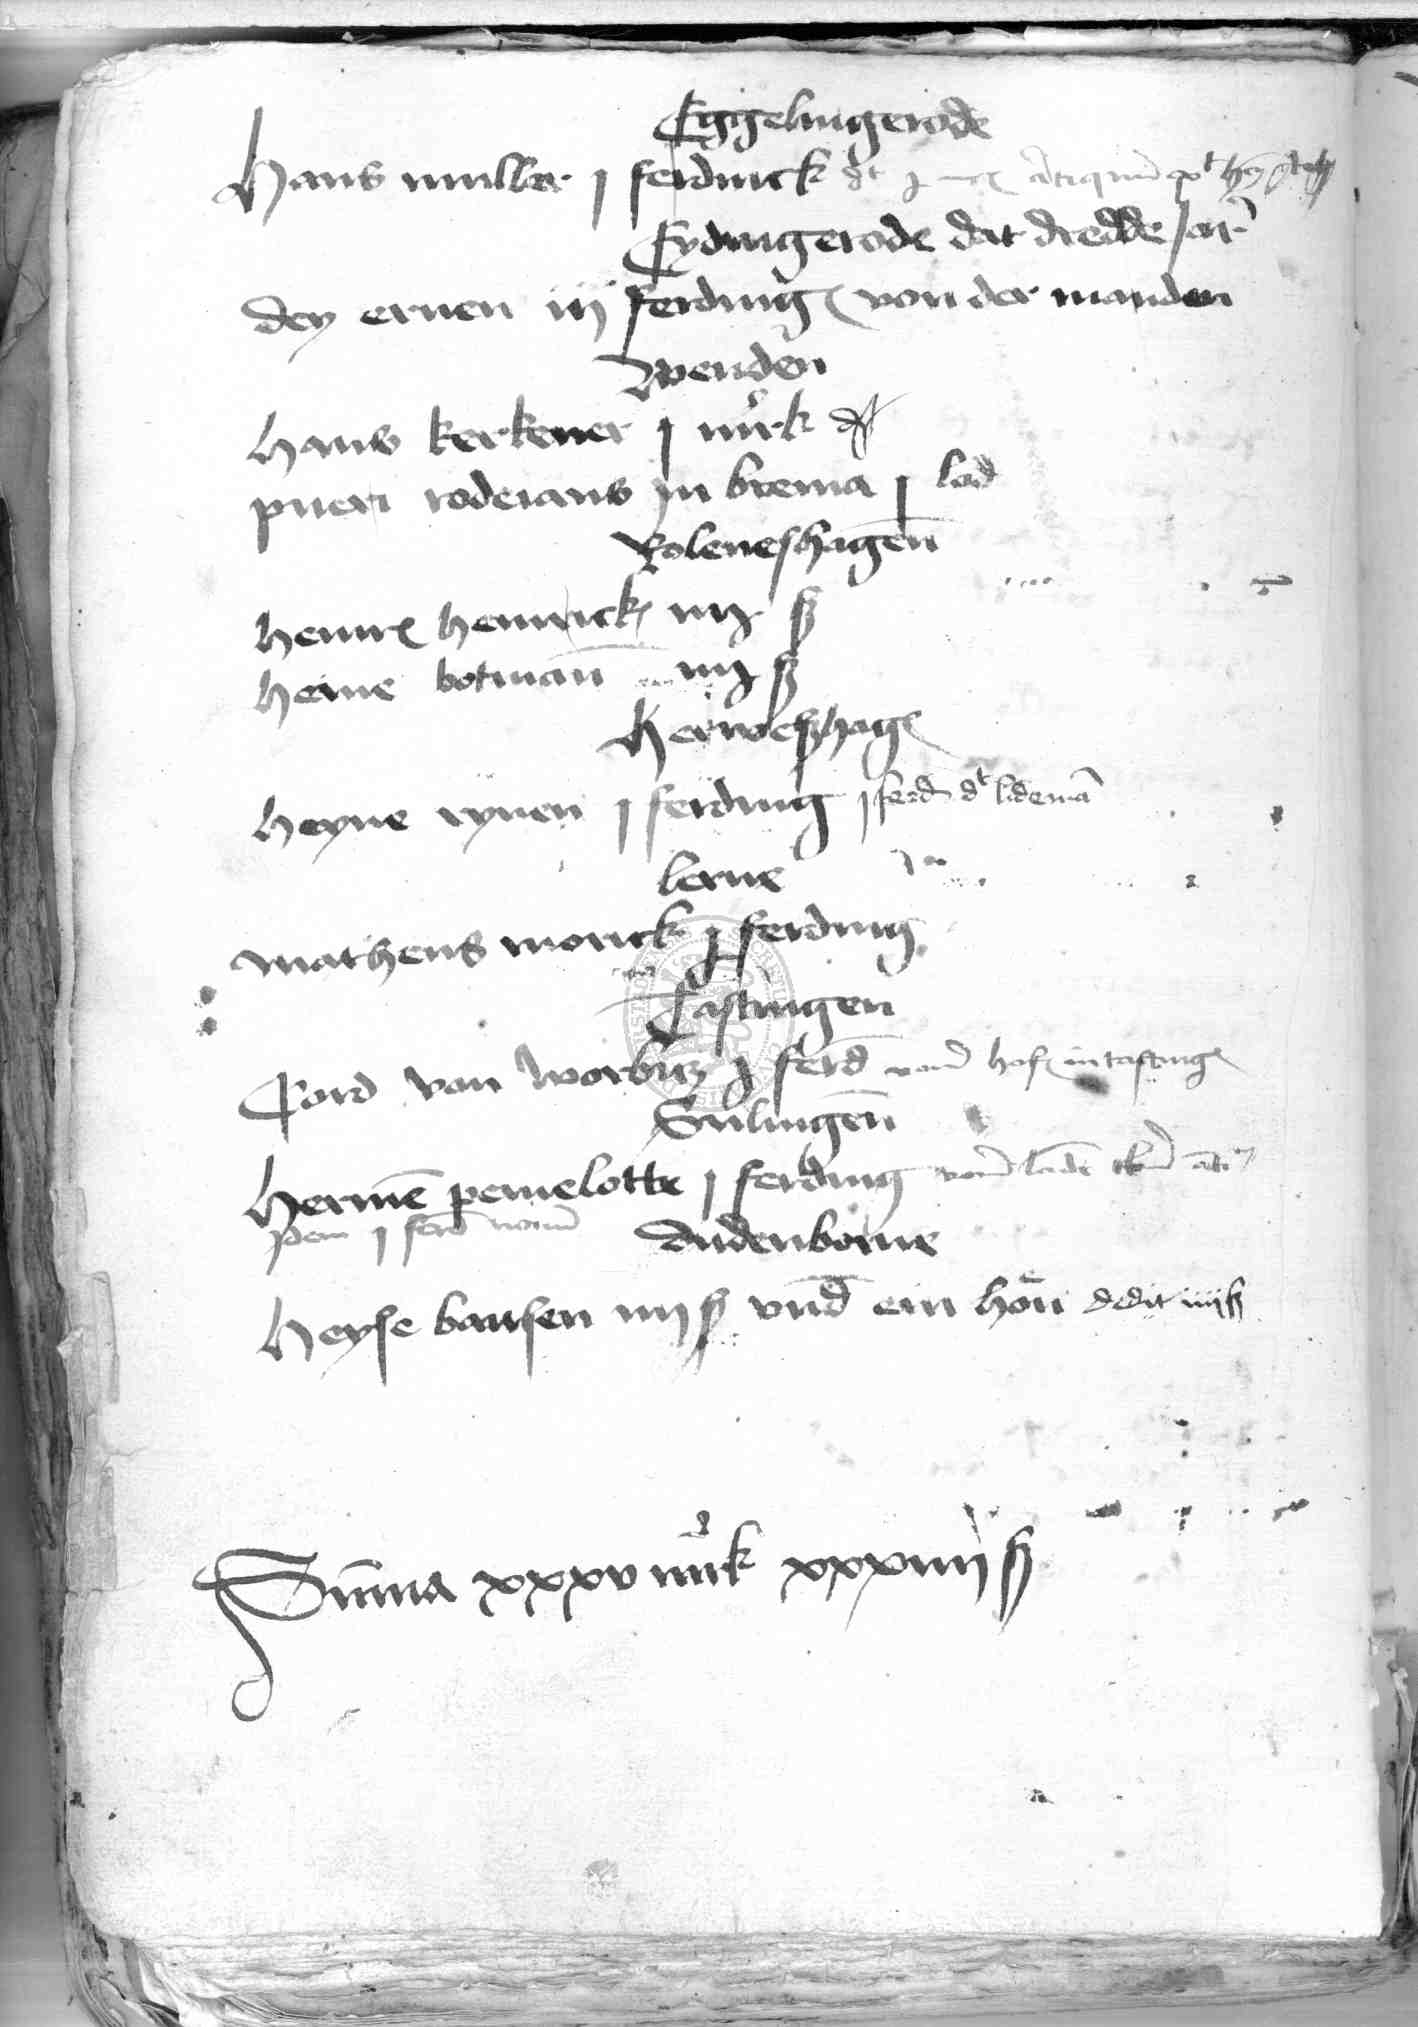 Eggelingerode
Hans muller j ferdinck dt
Eydingerode dat dredde jar
dey ernen iij ferding von der manden
Wenden
Hans kerkener j mrk dt
pueri roderans in brema j lod
Roleneshagen
Heinr henrick iiij ß
Heine botman iiij ß
Herwesshag
Heyne rynen j ferding j ferd dt lideman
lerne
Matheus monck j ferding
Tastingen
Cord van worbiz j ferd hof in tasting
Sulingen
Hermen pemelotte j ferding
j ferd
dudenborne
Heyse bansen iiij ß vnd ein hon dedit iiij ß
Summa xxxv mrk xxxiiij ß